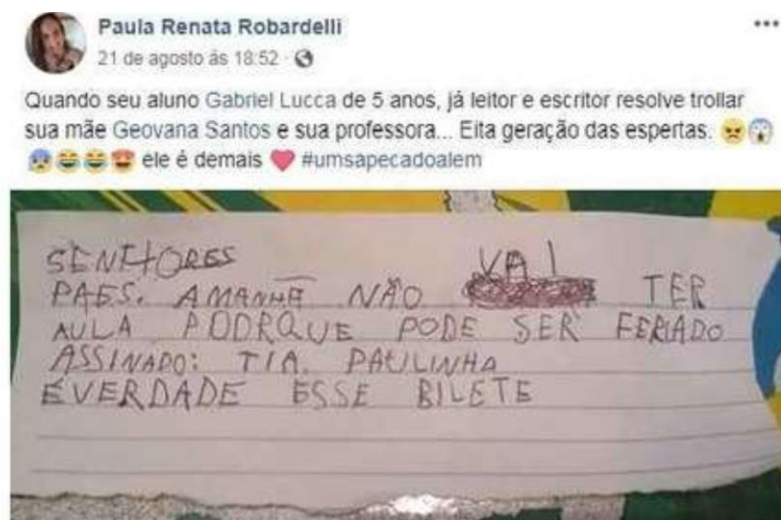 Paula Renata Robardelli
21 de agosto às 18:52
Quando seu aluno Gabriel Lucca de 5 anos, já leitor e escritor resolve trollar
sua mãe Geovana Santos e sua professora... Eita geração das espertas.
ele é demais #umsapecadoalem
SENHORES VAI
PAES. AMANHÃ NÃO TER
AULA PODRQUE PODE SER FERIADO
ASSINADO: TIA. PAULINHA
ÉVERDADE ESSE BILETE